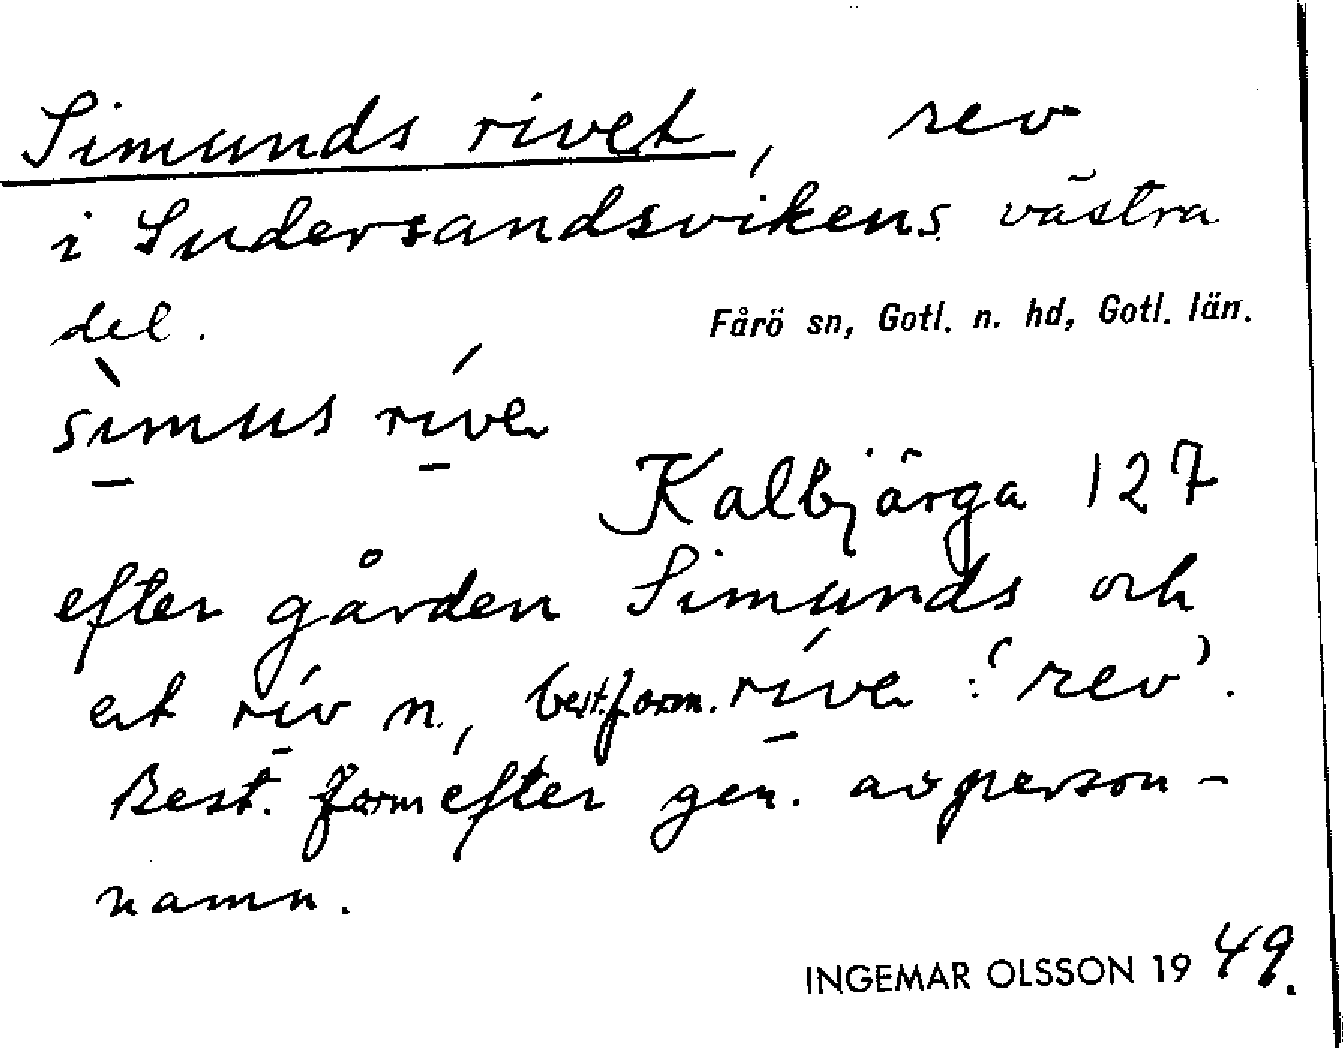 Simunds rivet, rev
i Sudersandsvikens västra
del.
Fårö sn, Gotl. n. hd, Gotl. län.
sìmus ríve
Kalbjärga 127
efter gården Simunds och
et rív n., best. form. ríve : 'rev'.
Best. form efter gen. av person-
namn.
INGEMAR OLSSON 1949.